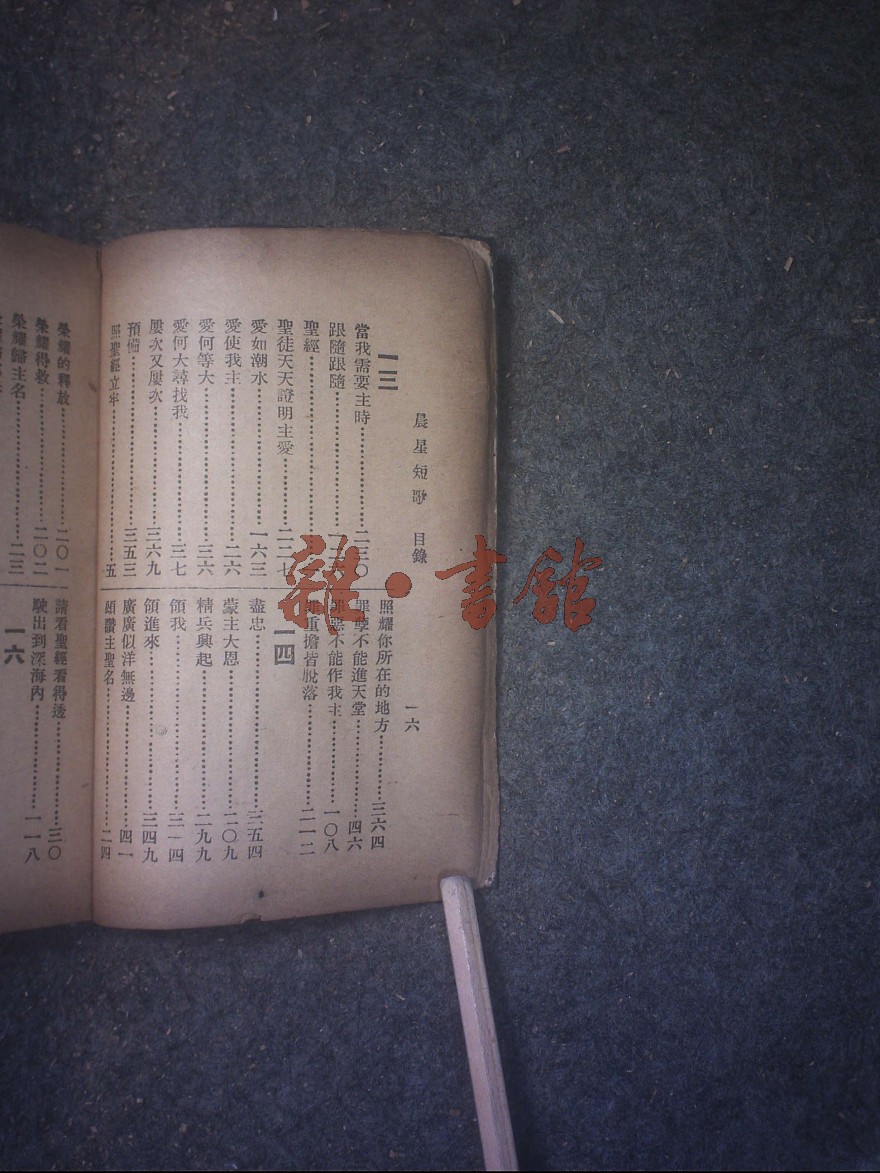 晨星短歌 目錄 一六
一三
當我需要主時……二三〇
跟隨跟隨……
聖經……
聖徒天天證明主愛……二二七
愛如潮水……一六三
愛使我主……二六
愛何等大……三六
愛何大尋找我……三七
屢次又屢次……三六九
預備……三五三
照聖經立牢……五
照耀你所在的地方……三六四
罪孽不能進天堂……四六
罪惡不能作我主……一〇八
重擔皆脫落……二一二
一四
盡忠……三五四
蒙主大恩……二〇九
精兵興起……二九九
領我……三一四
領進來……二四九
廣廣似洋無邊……四一
頌讚主聖名……二四
榮耀的釋放……二〇一
榮耀得救……二〇二
榮耀歸主名……二三
請看聖經看得透……三〇
駛出到深海內……一一八
一六
雜·書館